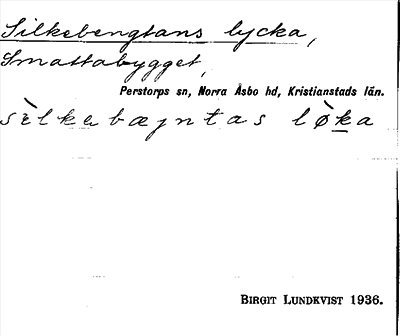 Silkebengtans lycka,
Smattabygget,
Perstorps sn, Norra Åsbo hd, Kristianstads län.
sìlkabæŋtas lø̀ka
BIRGIT LUNDKVIST 1936.